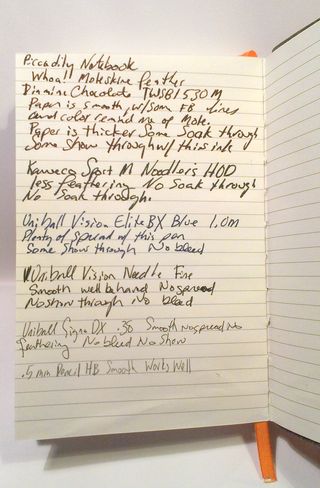 Piccadilly Notebook
Whoa!! Moleskine feather
Diamine Chocolate TWSBI 530 M
Paper is smooth, w/som FB lines
and color remind me of Mole.
Paper is thicker Some Soak through
Some Show through w/ this ink
Kaweco Sport M Noodlers HOD
less feathering No Soak through
No Soak through.
Uniball Vision Elite BX Blue 1.0m
Plenty of spread of this pen
Some Show through No bleed
Uniball Vision Needle Fine
Smooth well behaved No spread
No show through No bleed
Uniball Signo DX .38 Smooth No spread No
feathering No Bleed No Show
.5 mm Pencil HB Smooth Works Well